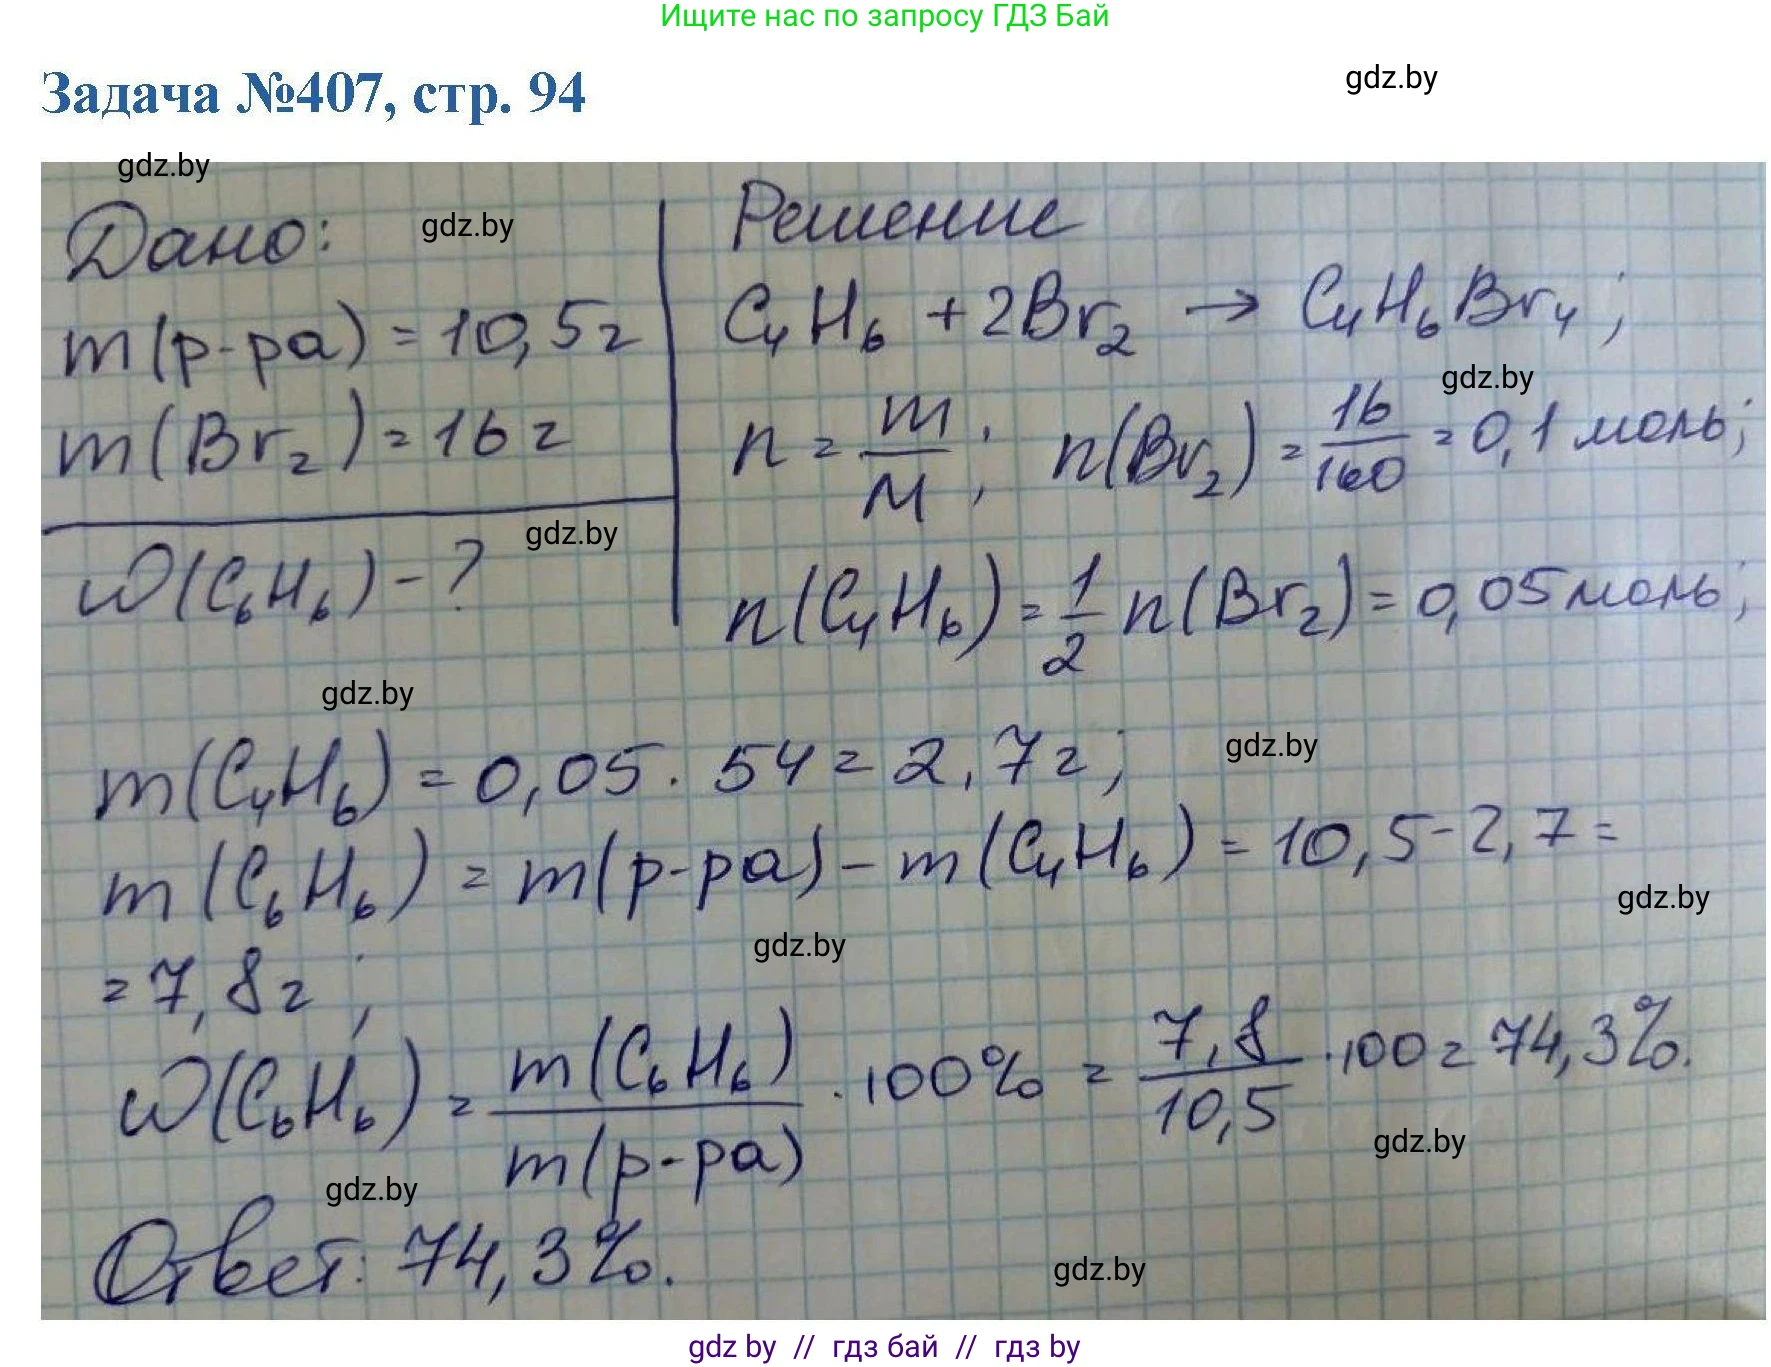 Ищите нас по запросу ГДЗ Бай
Задача №407, стр. 94
gdz.by
gdz.by
Дано:
gdz.by
m(р-ра) = 10,5 г
m(Br₂) = 16 г
gdz.by
ω(C₆H₆) - ?
Решение
C₄H₆ + 2Br₂ → C₄H₆Br₄;
gdz.by
n = m/M; n(Br₂) = 16/160 = 0,1 моль;
n(C₄H₆) = 1/2 n(Br₂) = 0,05 моль;
gdz.by
m(C₄H₆) = 0,05 · 54 = 2,7 г;
gdz.by
m(C₆H₆) = m(р-ра) - m(C₄H₆) = 10,5 - 2,7 =
gdz.by
= 7,8 г;
gdz.by
ω(C₆H₆) = m(C₆H₆)/m(р-ра) · 100% = 7,8/10,5 · 100 = 74,3%.
gdz.by
gdz.by
Ответ: 74,3%.
gdz.by
gdz by // гдз бай // гдз by